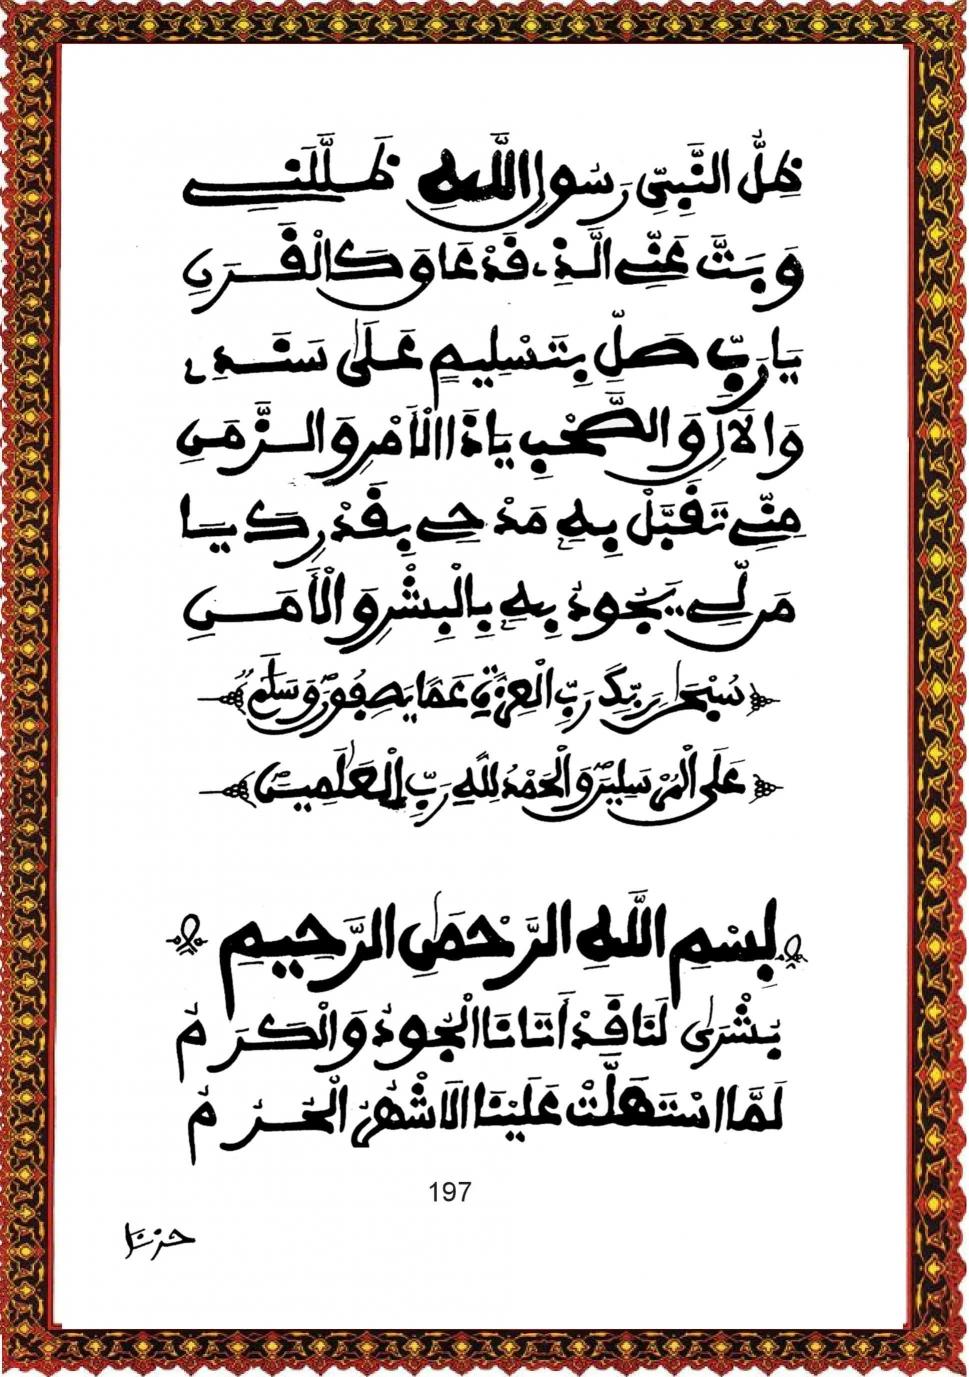 ظِلُّ النَّبِيِّ رَسُولِ اللَّهِ ظَلَّلَنِي
وَبَتَّ عَنِّي الَّذِي قَدْ عَاوَكَ الْقَرَنِ
يَا رَبِّ صَلِّ بِتَسْلِيمٍ عَلَى سَنَدِي
وَالْآلِ وَالصَّحْبِ يَا ذَا الْأَمْرِ وَالزَّمَنِ
مِنِّي تَقَبَّلْ بِهِ مَدْحِي بِقَدْرِكَ يَا
مَن لِي يَجُودُ بِهِ بِالْبِشْرِ وَالْأَمَنِ
سُبْحَٰنَ رَبِّكَ رَبِّ الْعِزَّةِ عَمَّا يَصِفُونَ وَسَلَٰمٌ
عَلَى الْمُرْسَلِينَ وَالْحَمْدُ لِلَّهِ رَبِّ الْعَٰلَمِينَ
بِسْمِ اللَّهِ الرَّحْمَٰنِ الرَّحِيمِ
بُشْرَىٰ لَنَا قَدْ أَتَانَا الْجُودُ وَالْكَرَمُ
لَمَّا اسْتَهَلَّتْ عَلَيْنَا الْأَشْهُرُ الْحُرُمُ
197